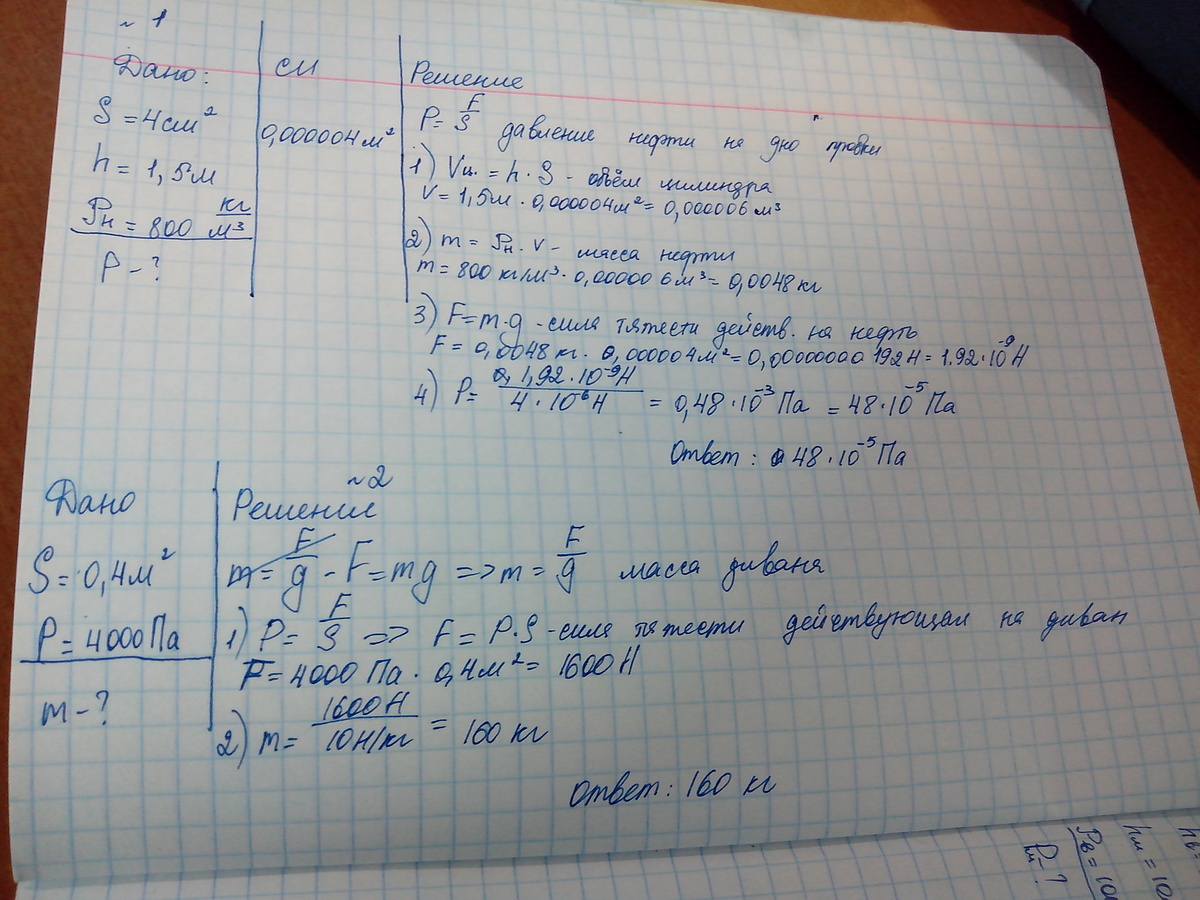 ~ 1
Дано:
S = 4 см²
h = 1,5 м
Pн = 800 кг/м³
P - ?
СИ
0,000004 м²
Решение
P = F/S давление нефти на дно
1) Vц. = h · S - объём цилиндра
V = 1,5 м · 0,000004 м² = 0,000006 м³
2) m = Pн · v - масса нефти
m = 800 кг/м³ · 0,000006 м³ = 0,0048 кг
3) F = m·g - сила тяжести действ. на нефть
F = 0,0048 кг · 0,000004 м² = 0,0000000 192 Н = 1.92 · 10⁻⁹ Н
4) P = 1,92 · 10⁻⁹ Н / 4 · 10⁻⁶ Н = 0,48 · 10⁻³ Па = 48 · 10⁻⁵ Па
Ответ: 48 · 10⁻⁵ Па
~ 2
Дано
S = 0,4 м²
P = 4000 Па
m - ?
Решение
m = F/g - F = mg => m = F/g масса дивана
1) P = F/S => F = P·S - сила тяжести действующая на диван
F = 4000 Па · 0,4 м² = 1600 Н
2) m = 1600 Н / 10 Н/кг = 160 кг
Ответ: 160 кг
hв =
hм = 10
Pв = 10
Pм - ?